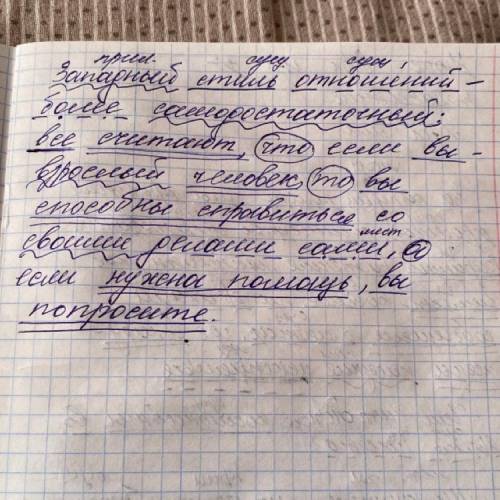 прил. сущ. сущ.
Западный стиль отношений -
более самодостаточный:
все считают, что если вы -
взрослый человек, то вы
способны справиться со
мест.
своими делами сами, а
если нужна помощь, вы
попросите.